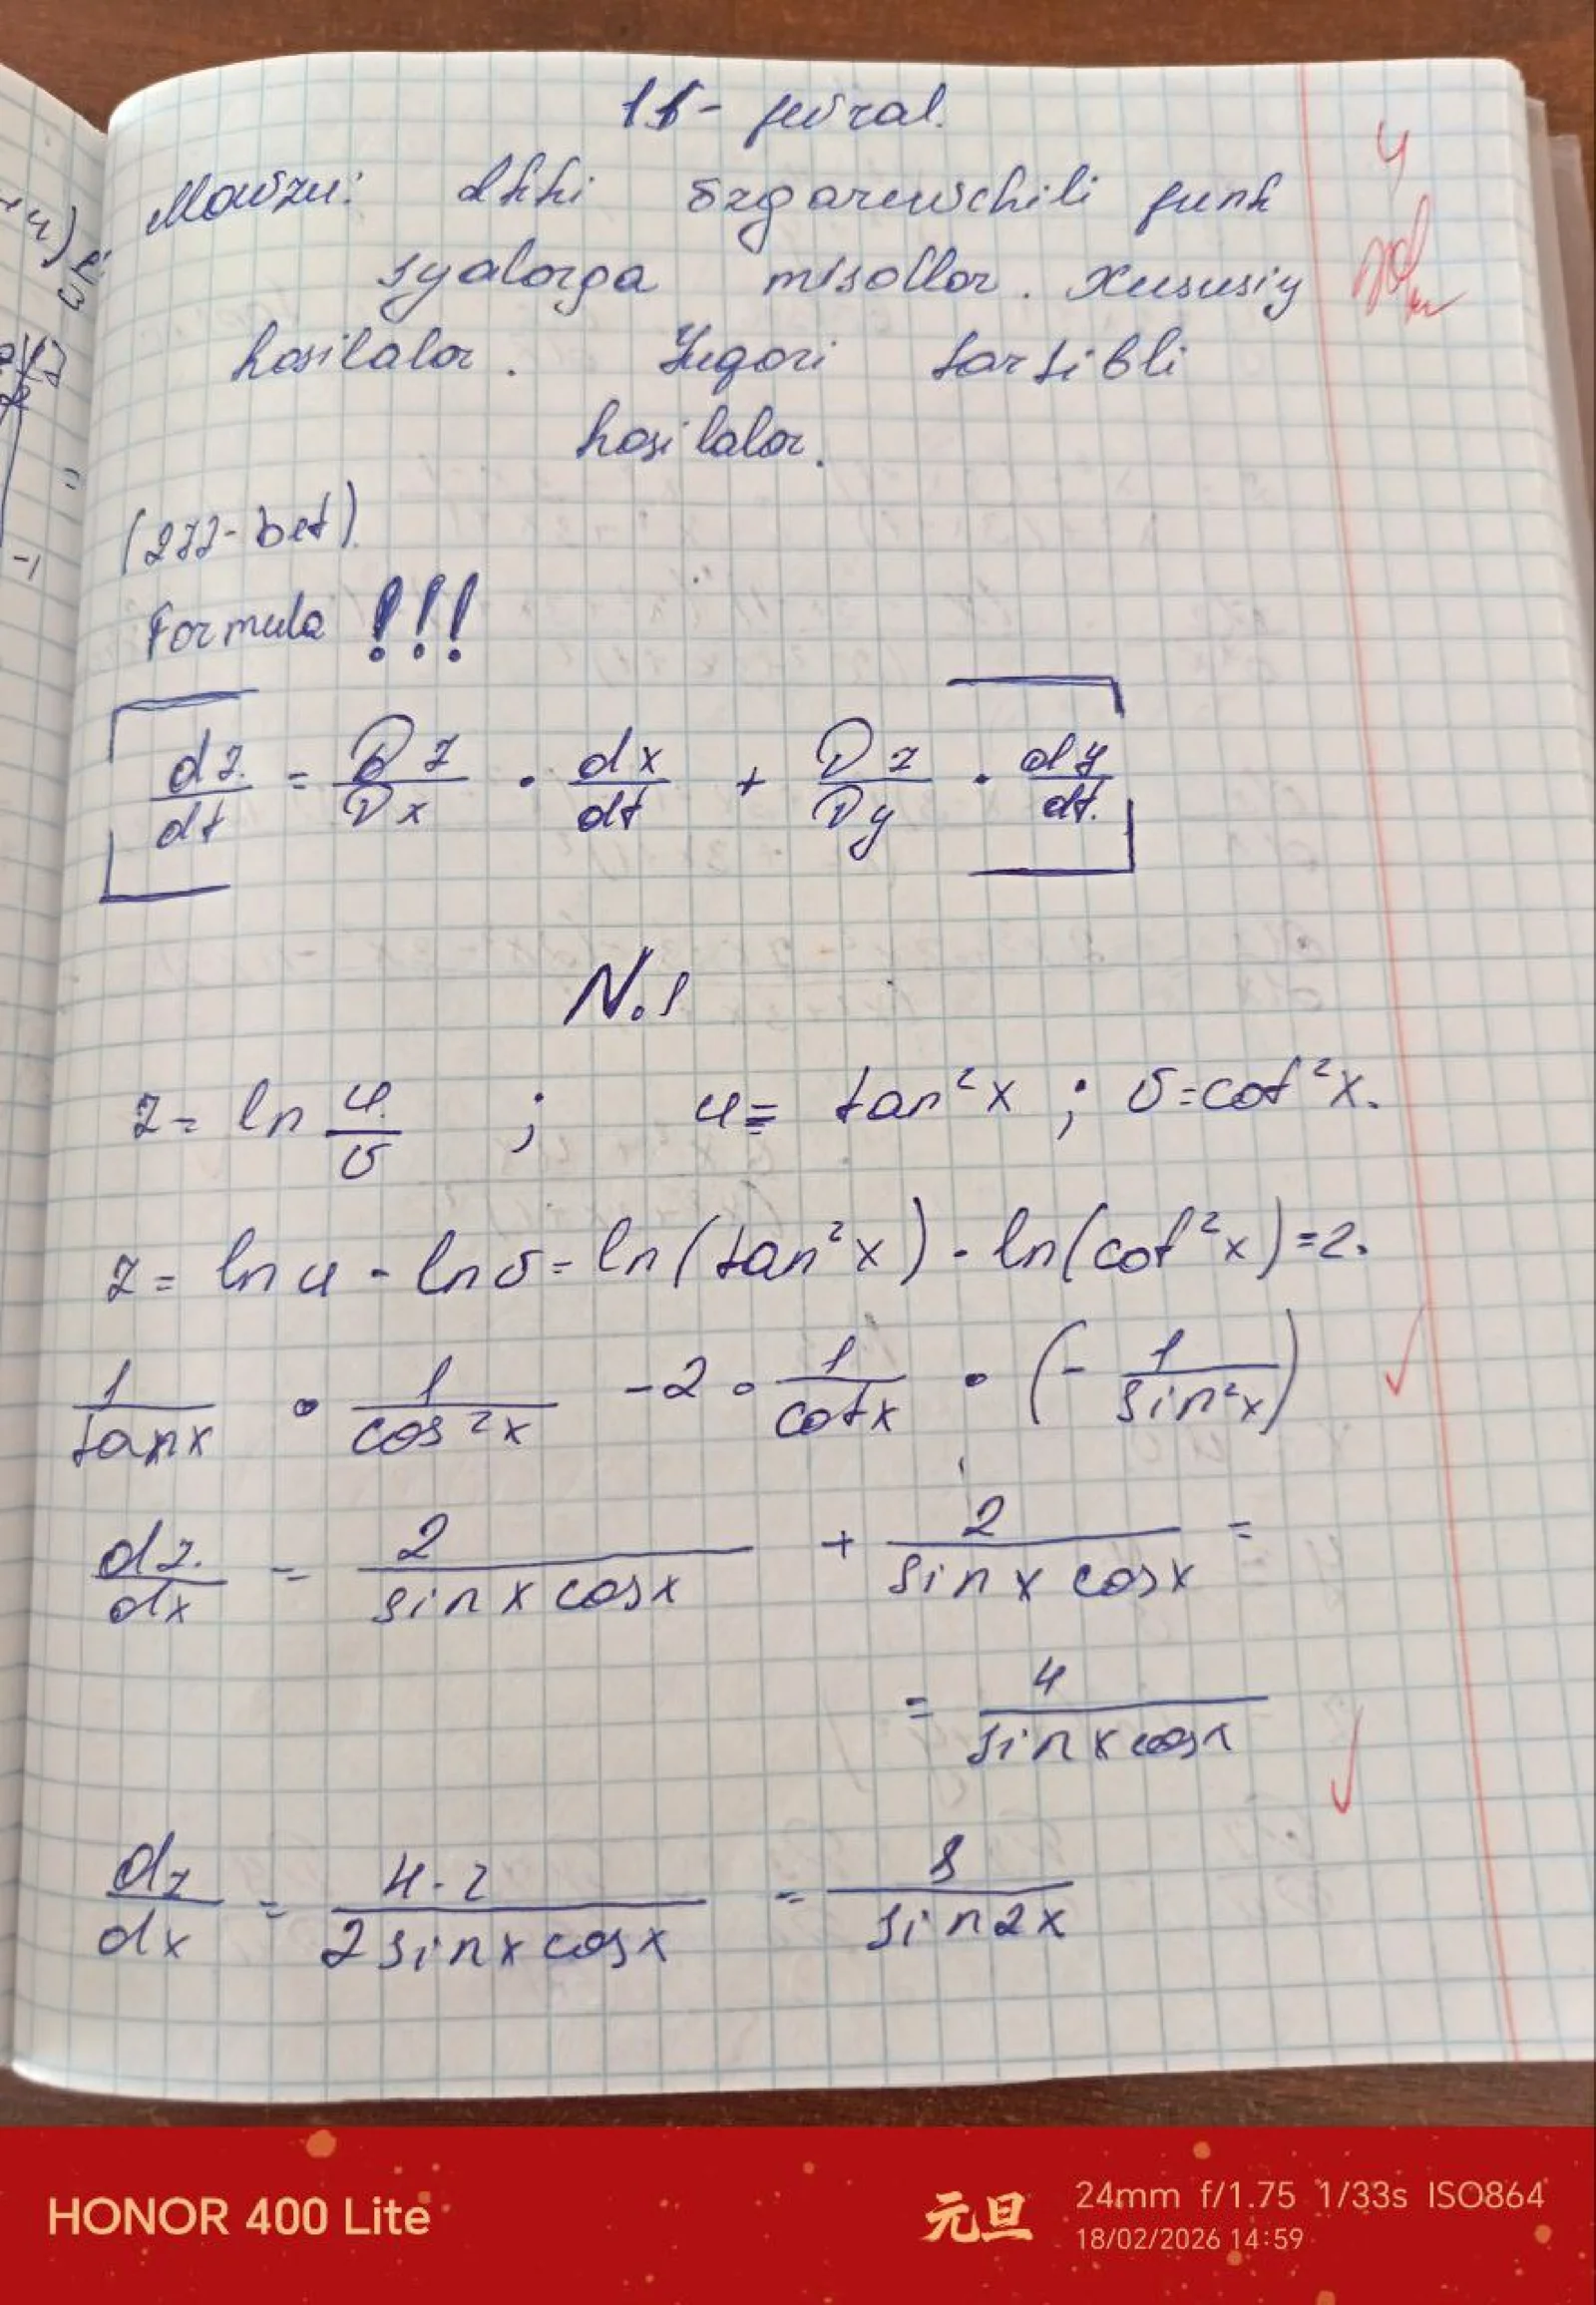 11- fevral.
Mavzu: Ikki o'zgaruvchili funk
syalarga misollar. Xususiy
hosilalar. Yuqori tartibli
hosilalar.
(277-bet)
Formula !!!
dz/dt = ∂z/∂x · dx/dt + ∂z/∂y · dy/dt
N.1
z = ln u/v ; u = tan²x ; v = cot²x.
z = ln u - ln v = ln(tan²x) - ln(cot²x) = 2·
1/tanx · 1/cos²x - 2 · 1/cotx · (- 1/sin²x)
dz/dx = 2/sinx cosx + 2/sinx cosx =
= 4/sinx cosx
dz/dx = 4·2/2sinx cosx = 8/sin2x
HONOR 400 Lite
元旦
24mm f/1.75 1/33s ISO864
18/02/2026 14:59